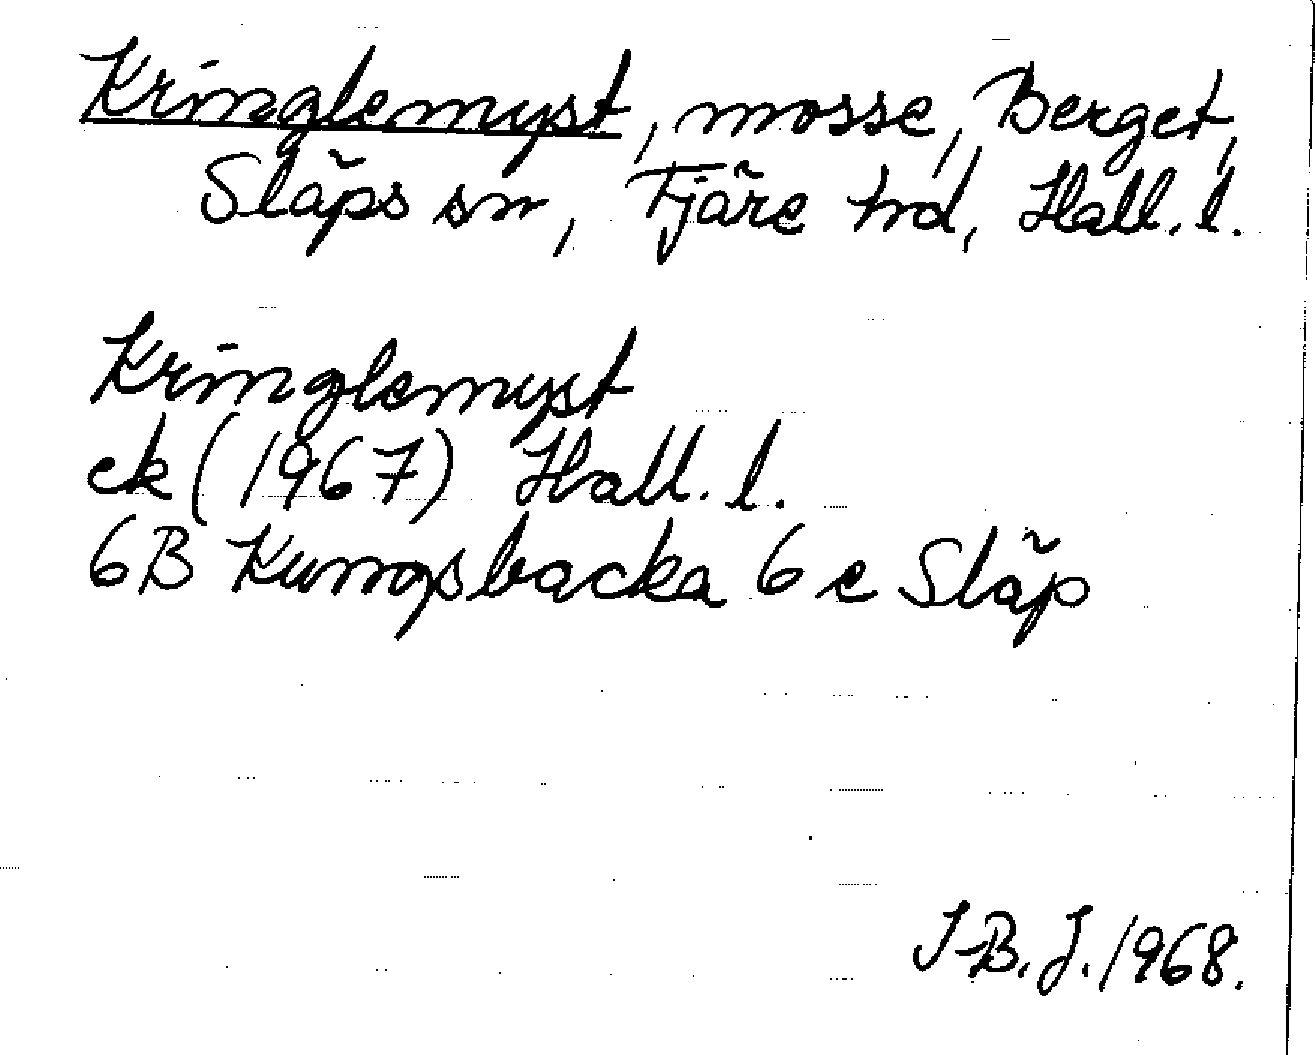 Kringlemyst, mosse, Berget,
Släps sn, Fjäre hd, Hall. l.
Kringlemyst
ek (1967) Hall. l.
6B Kungsbacka 6 e Släp
I-B. J. 1968.